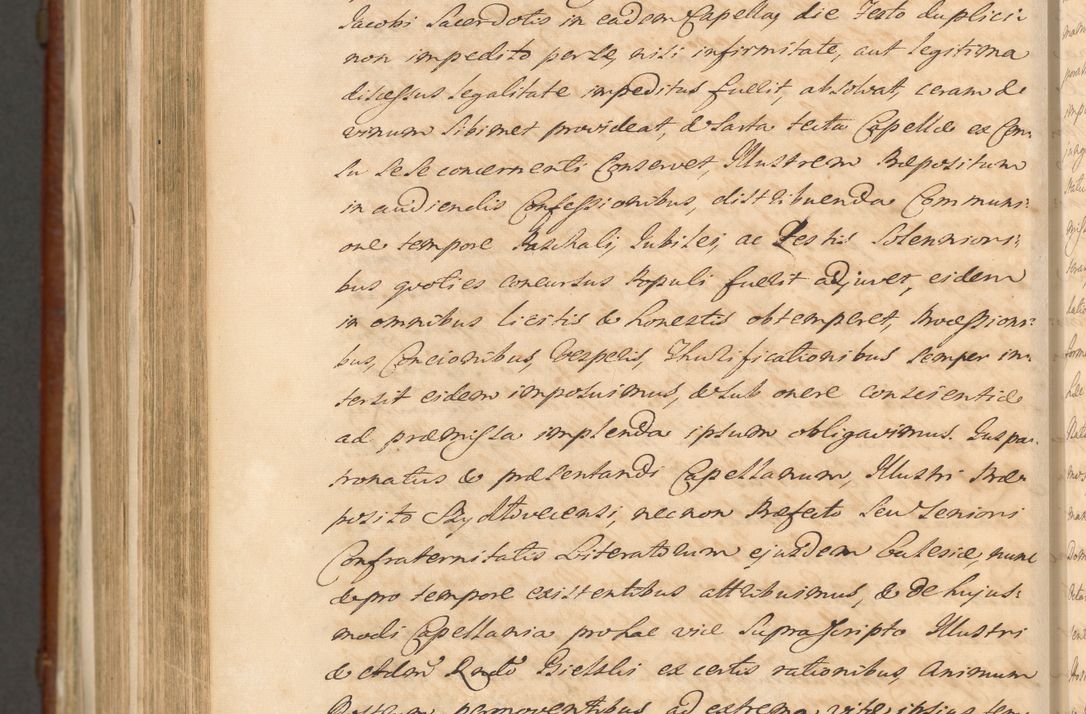 Jacobi Sacerdotis in eadem Capella, die Festo duplici
non impedito per se, nisi infirmitate, aut legitima
discessus legalitate impeditus fuerit, absolvat, ceram &
vinum sibimet provideat, & sarta tecta Capellæ ex Cen-
su sese concernenti Conservet, Illustrem Præpositum
in audiendis Confessionibus, distribuenda Communi-
one tempore Paschali, Jubilei, ac Festis Solenniori-
bus quoties concursus Populi fuerit adjuvet, eidem
in omnibus licitis & honestis obtemperet, Processioni-
bus, Concionibus, Vesperis, Thurificationibus semper in-
tersit eidem imposuimus, & sub onere conscientiæ
ad præmissa implenda ipsum obligavimus. Jus pa-
tronatus & præsentandi Capellanum, Illustri Præ-
posito Szydloveciensi, necnon Præfecto seu Seniori
Confraternitatis Literatorum ejusdem Ecclesiæ, nunc
& pro tempore existentibus attribuimus, & de hujus-
modi Capellania pro hac vice suprascripto Illustri
& Adm Rndo Gielski ex certis rationibus, Animum
Nostrum permoventibus ad extrema vitæ ipsius tem-